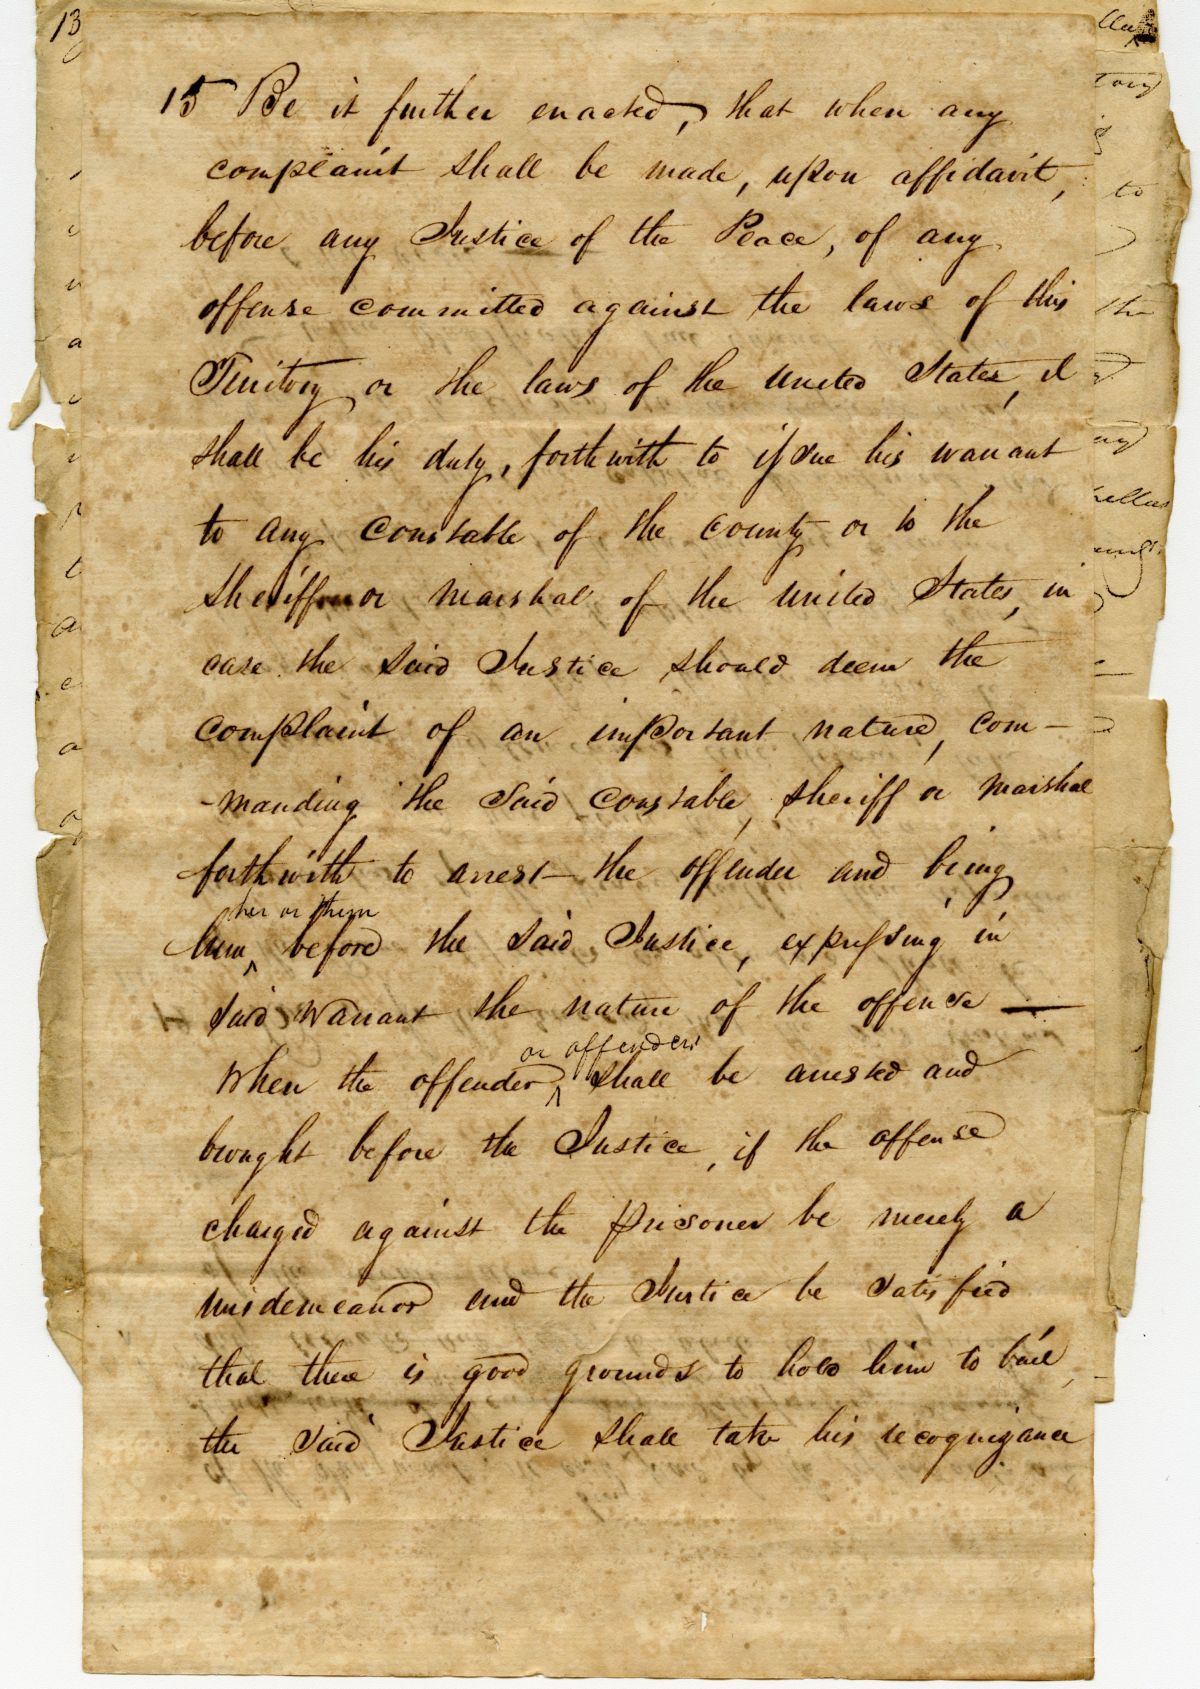 13
15 Be it further enacted, that when any
complaint shall be made, upon affidavit,
before any Justice of the Peace, of any
offense committed against the laws of this
Territory or the laws of the United States, it
shall be his duty, forthwith to issue his warrant
to any Constable of the County or to the
Sheriff or Marshal of the United States, in
case the said Justice should deem the
complaint of an important nature, com-
-manding the said Constable, Sheriff or Marshal
forthwith to arrest the offender and bring
her or them
him ^ before the said Justice, expressing in
said Warrant the nature of the offence —
or offenders
When the offender ^ shall be arrested and
brought before the Justice, if the offense
charged against the prisoner be merely a
misdemeanor and the Justice be satisfied
that there is good grounds to hold him to bail,
the said Justice shall take his recognizance
to
the